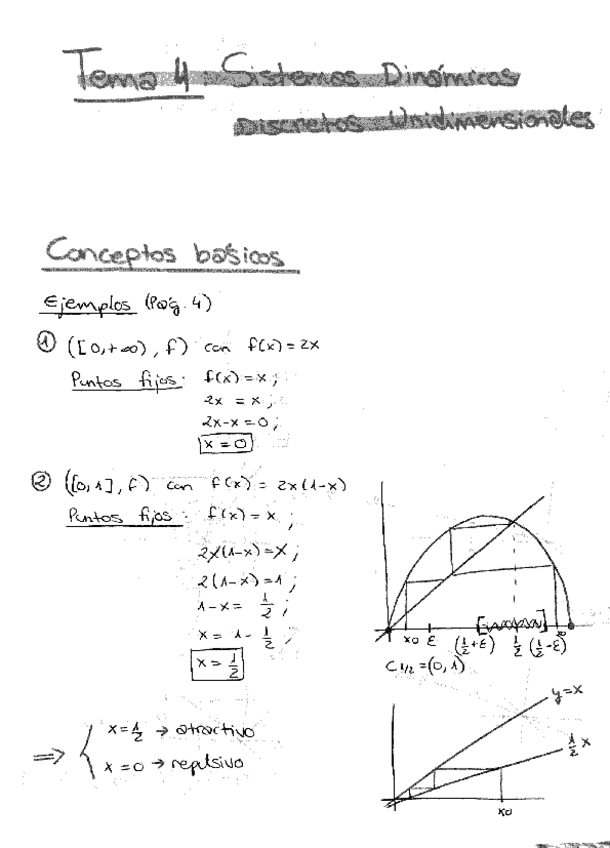 Tema 4. Sistemas Dinámicos
Discretos Unidimensionales
Conceptos básicos
Ejemplos (Pág. 4)
① ([0,+∞), f) con f(x) = 2x
Puntos fijos: f(x) = x ;
2x = x ;
2x-x = 0 ;
x = 0
② ([0,1], f) con f(x) = 2x(1-x)
Puntos fijos: f(x) = x ;
2x(1-x) = x ;
2(1-x) = 1 ;
1-x = 1/2 ;
x = 1 - 1/2 ;
x = 1/2
x0 ε (1/2+ε) 1/2 (1/2-ε)
C1/2 = (0,1)
⇒ { x = 1/2 → atractivo
x = 0 → repulsivo
y=x
1/2 x
x0